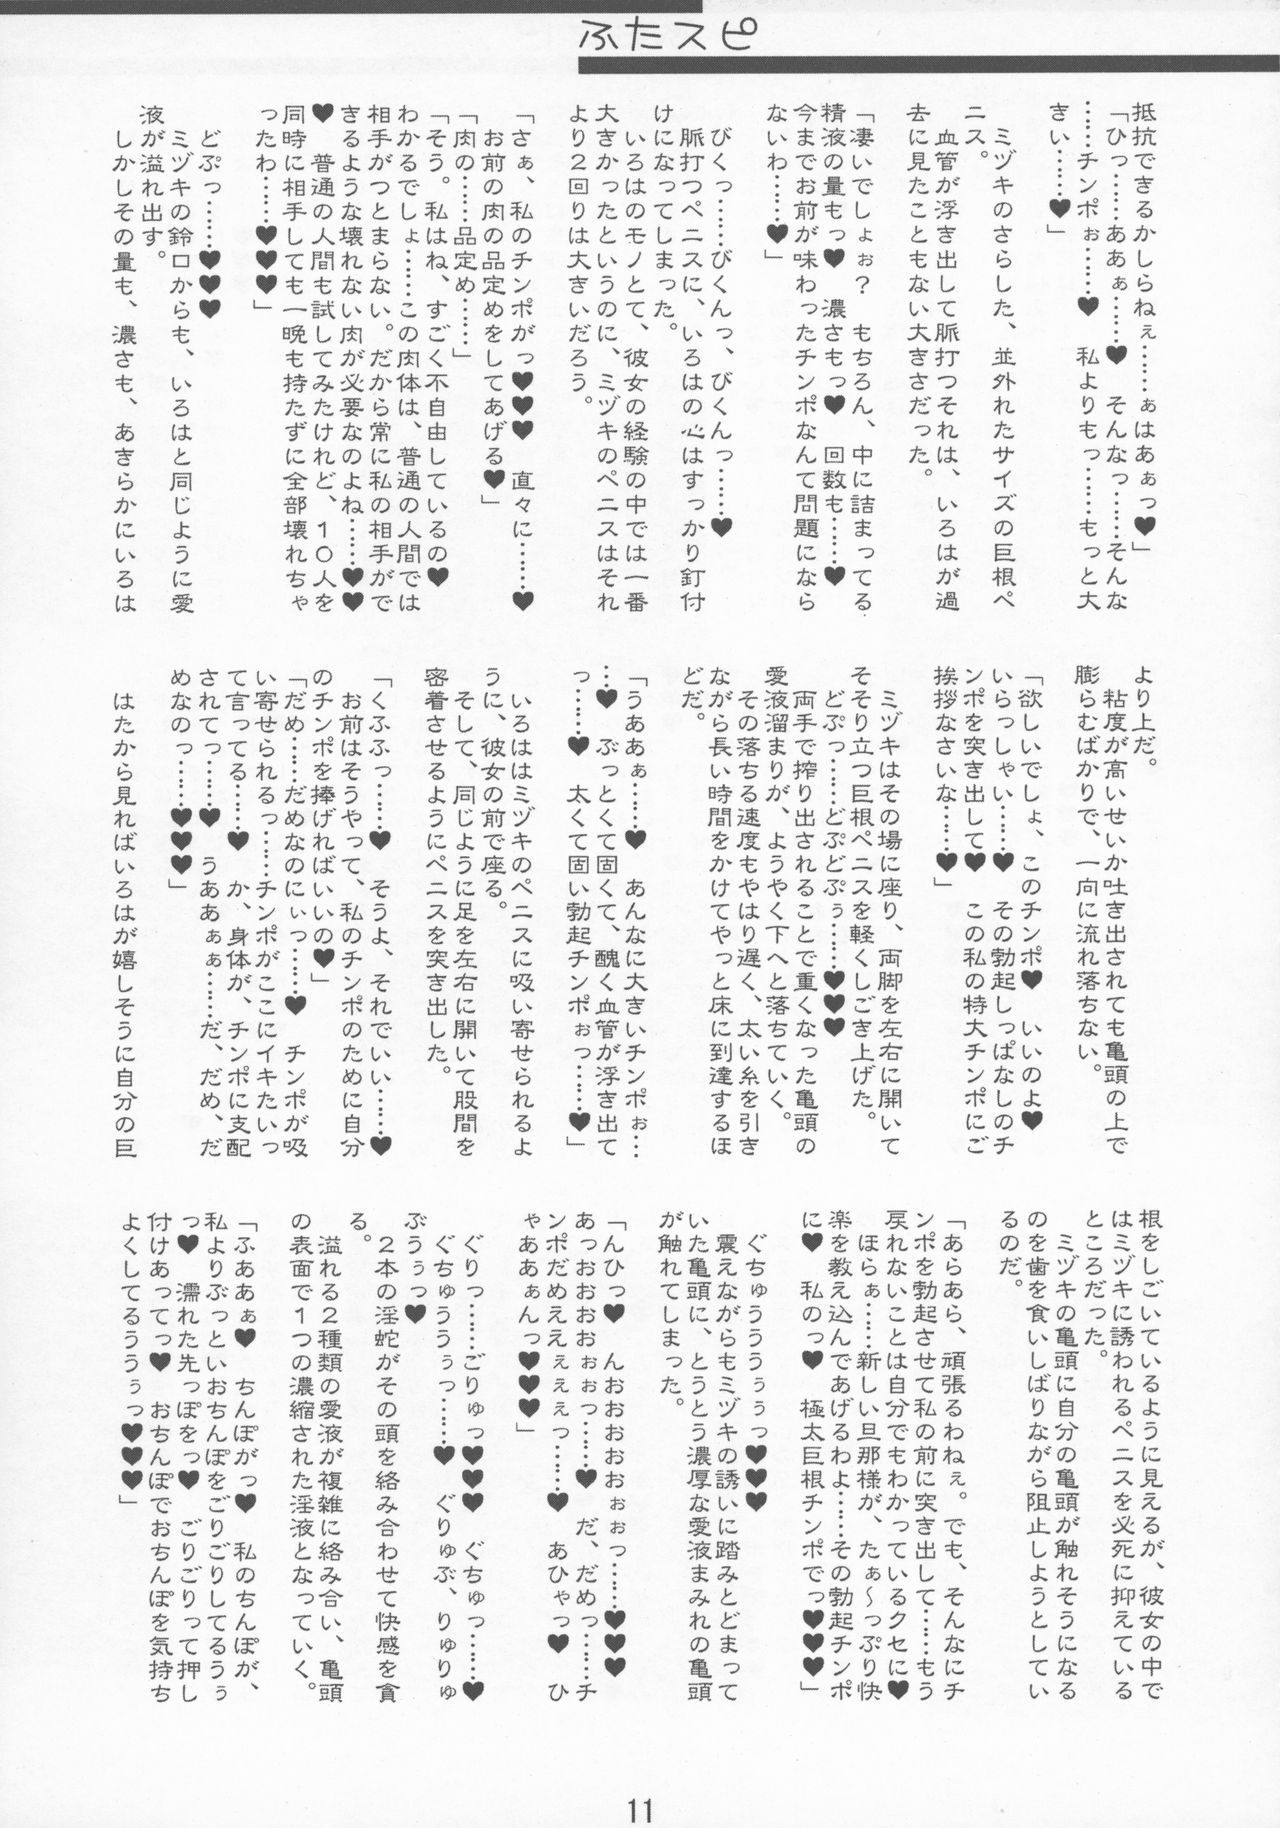 ふたスピ
抵抗できるかしらねぇ……ぁはあぁっ♥」
「ひっ……ああぁ……♥　そんなっ……そんな
……チンポぉ……♥　私よりもっ……もっと大
きぃ……♥」
　ミヅキのさらした、並外れたサイズの巨根ペ
ニス。
　血管が浮き出して脈打つそれは、いろはが過
去に見たこともない大きさだった。
「凄いでしょぉ？　もちろん、中に詰まってる
精液の量もっ♥　濃さもっ♥　回数も……♥
今までお前が味わったチンポなんて問題になら
ないわ……♥」
　びくっ……びくんっ、びくんっ……♥
　脈打つペニスに、いろはの心はすっかり釘付
けになってしまった。
　いろはのモノとて、彼女の経験の中では一番
大きかったというのに、ミヅキのペニスはそれ
より２回りは大きいだろう。
「さぁ、私のチンポがっ♥♥♥　直々に……♥
　お前の肉の品定めをしてあげる♥」
「肉の……品定め……」
「そう。私はね、すごく不自由しているの♥
わかるでしょ……この肉体は、普通の人間では
相手がつとまらない。だから常に私の相手がで
きるような壊れない肉が必要なのよね……♥♥
♥　普通の人間も試してみたけれど、１０人を
同時に相手しても一晩も持たずに全部壊れちゃ
ったわ……♥♥♥」
　どぷっ……♥♥♥
　ミヅキの鈴口からも、いろはと同じように愛
液が溢れ出す。
　しかしその量も、濃さも、あきらかにいろは
より上だ。
　粘度が高いせいか吐き出されても亀頭の上で
膨らむばかりで、一向に流れ落ちない。
「欲しいでしょ、このチンポ♥　いいのよ♥
いらっしゃい……♥　その勃起しっぱなしのチ
ンポを突き出して♥　この私の特大チンポにご
挨拶なさいな……♥」
　ミヅキはその場に座り、両脚を左右に開いて
そそり立つ巨根ペニスを軽くしごき上げた。
　どぷっ……どぷどぷぅ……♥♥♥
　両手で搾り出されることで重くなった亀頭の
愛液溜まりが、ようやく下へと落ちていく。
　その落ちる速度もやはり遅く、太い糸を引き
ながら長い時間をかけてやっと床に到達するほ
どだ。
「うああぁ……♥　あんなに大きいチンポぉ…
…♥　ぶっとくて固くて、醜く血管が浮き出て
っ……♥　太くて固い勃起チンポぉっ……♥」
　いろははミヅキのペニスに吸い寄せられるよ
うに、彼女の前で座る。
　そして、同じように足を左右に開いて股間を
密着させるようにペニスを突き出した。
「くふふっ……♥　そうよ、それでいい……♥
　お前はそうやって、私のチンポのために自分
のチンポを捧げればいいの♥」
「だめ……だめなのにぃっ……♥　チンポが吸
い寄せられるっ……チンポがここにイキたいっ
て言ってる……♥　か、身体が、チンポに支配
されてっ……♥　うああぁぁ……だ、だめ、だ
めなのっ……♥♥♥」
　はたから見ればいろはが嬉しそうに自分の巨
根をしごいているように見えるが、彼女の中で
はミヅキに誘われるペニスを必死に抑えている
ところだった。
　ミヅキの亀頭に自分の亀頭が触れそうになる
のを歯を食いしばりながら阻止しようとしてい
るのだ。
「あらあら、頑張るわねぇ。でも、そんなにチ
ンポを勃起させて私の前に突き出して……もう
戻れないことは自分でもわかっているクセに♥
　ほらぁ……新しい旦那様が、たぁ～っぷり快
楽を教え込んであげるわよ……その勃起チンポ
に♥　私のっ♥　極太巨根チンポでっ♥♥♥」
　ぐちゅうううぅぅっ♥♥♥
　震えながらもミヅキの誘いに踏みとどまって
いた亀頭に、とうとう濃厚な愛液まみれの亀頭
が触れてしまった。
「んひっ♥　んおおおおおぉぉっ……♥♥♥
あっおおおおぉぉっ……♥　だ、だめっ……チ
ンポだめええぇぇぇっ……♥　あひゃっ♥　ひ
ゃああぁんっ♥♥♥」
　ぐりっ……ごりゅっ♥♥♥　ぐちゅっ……♥
　ぐちゅううぅっ……♥　ぐりゅぶ、りゅりゅ
ぶうぅっ♥
　２本の淫蛇がその頭を絡み合わせて快感を貪
る。
　溢れる２種類の愛液が複雑に絡み合い、亀頭
の表面で１つの濃縮された淫液となっていく。
「ふああぁ♥　ちんぽがっ♥　私のちんぽが、
私よりぶっといおちんぽをごりごりしてるうぅ
っ♥　濡れた先っぽをっ♥　ごりごりって押し
付けあってっ♥　おちんぽでおちんぽを気持ち
よくしてるううぅっ♥♥♥」
11